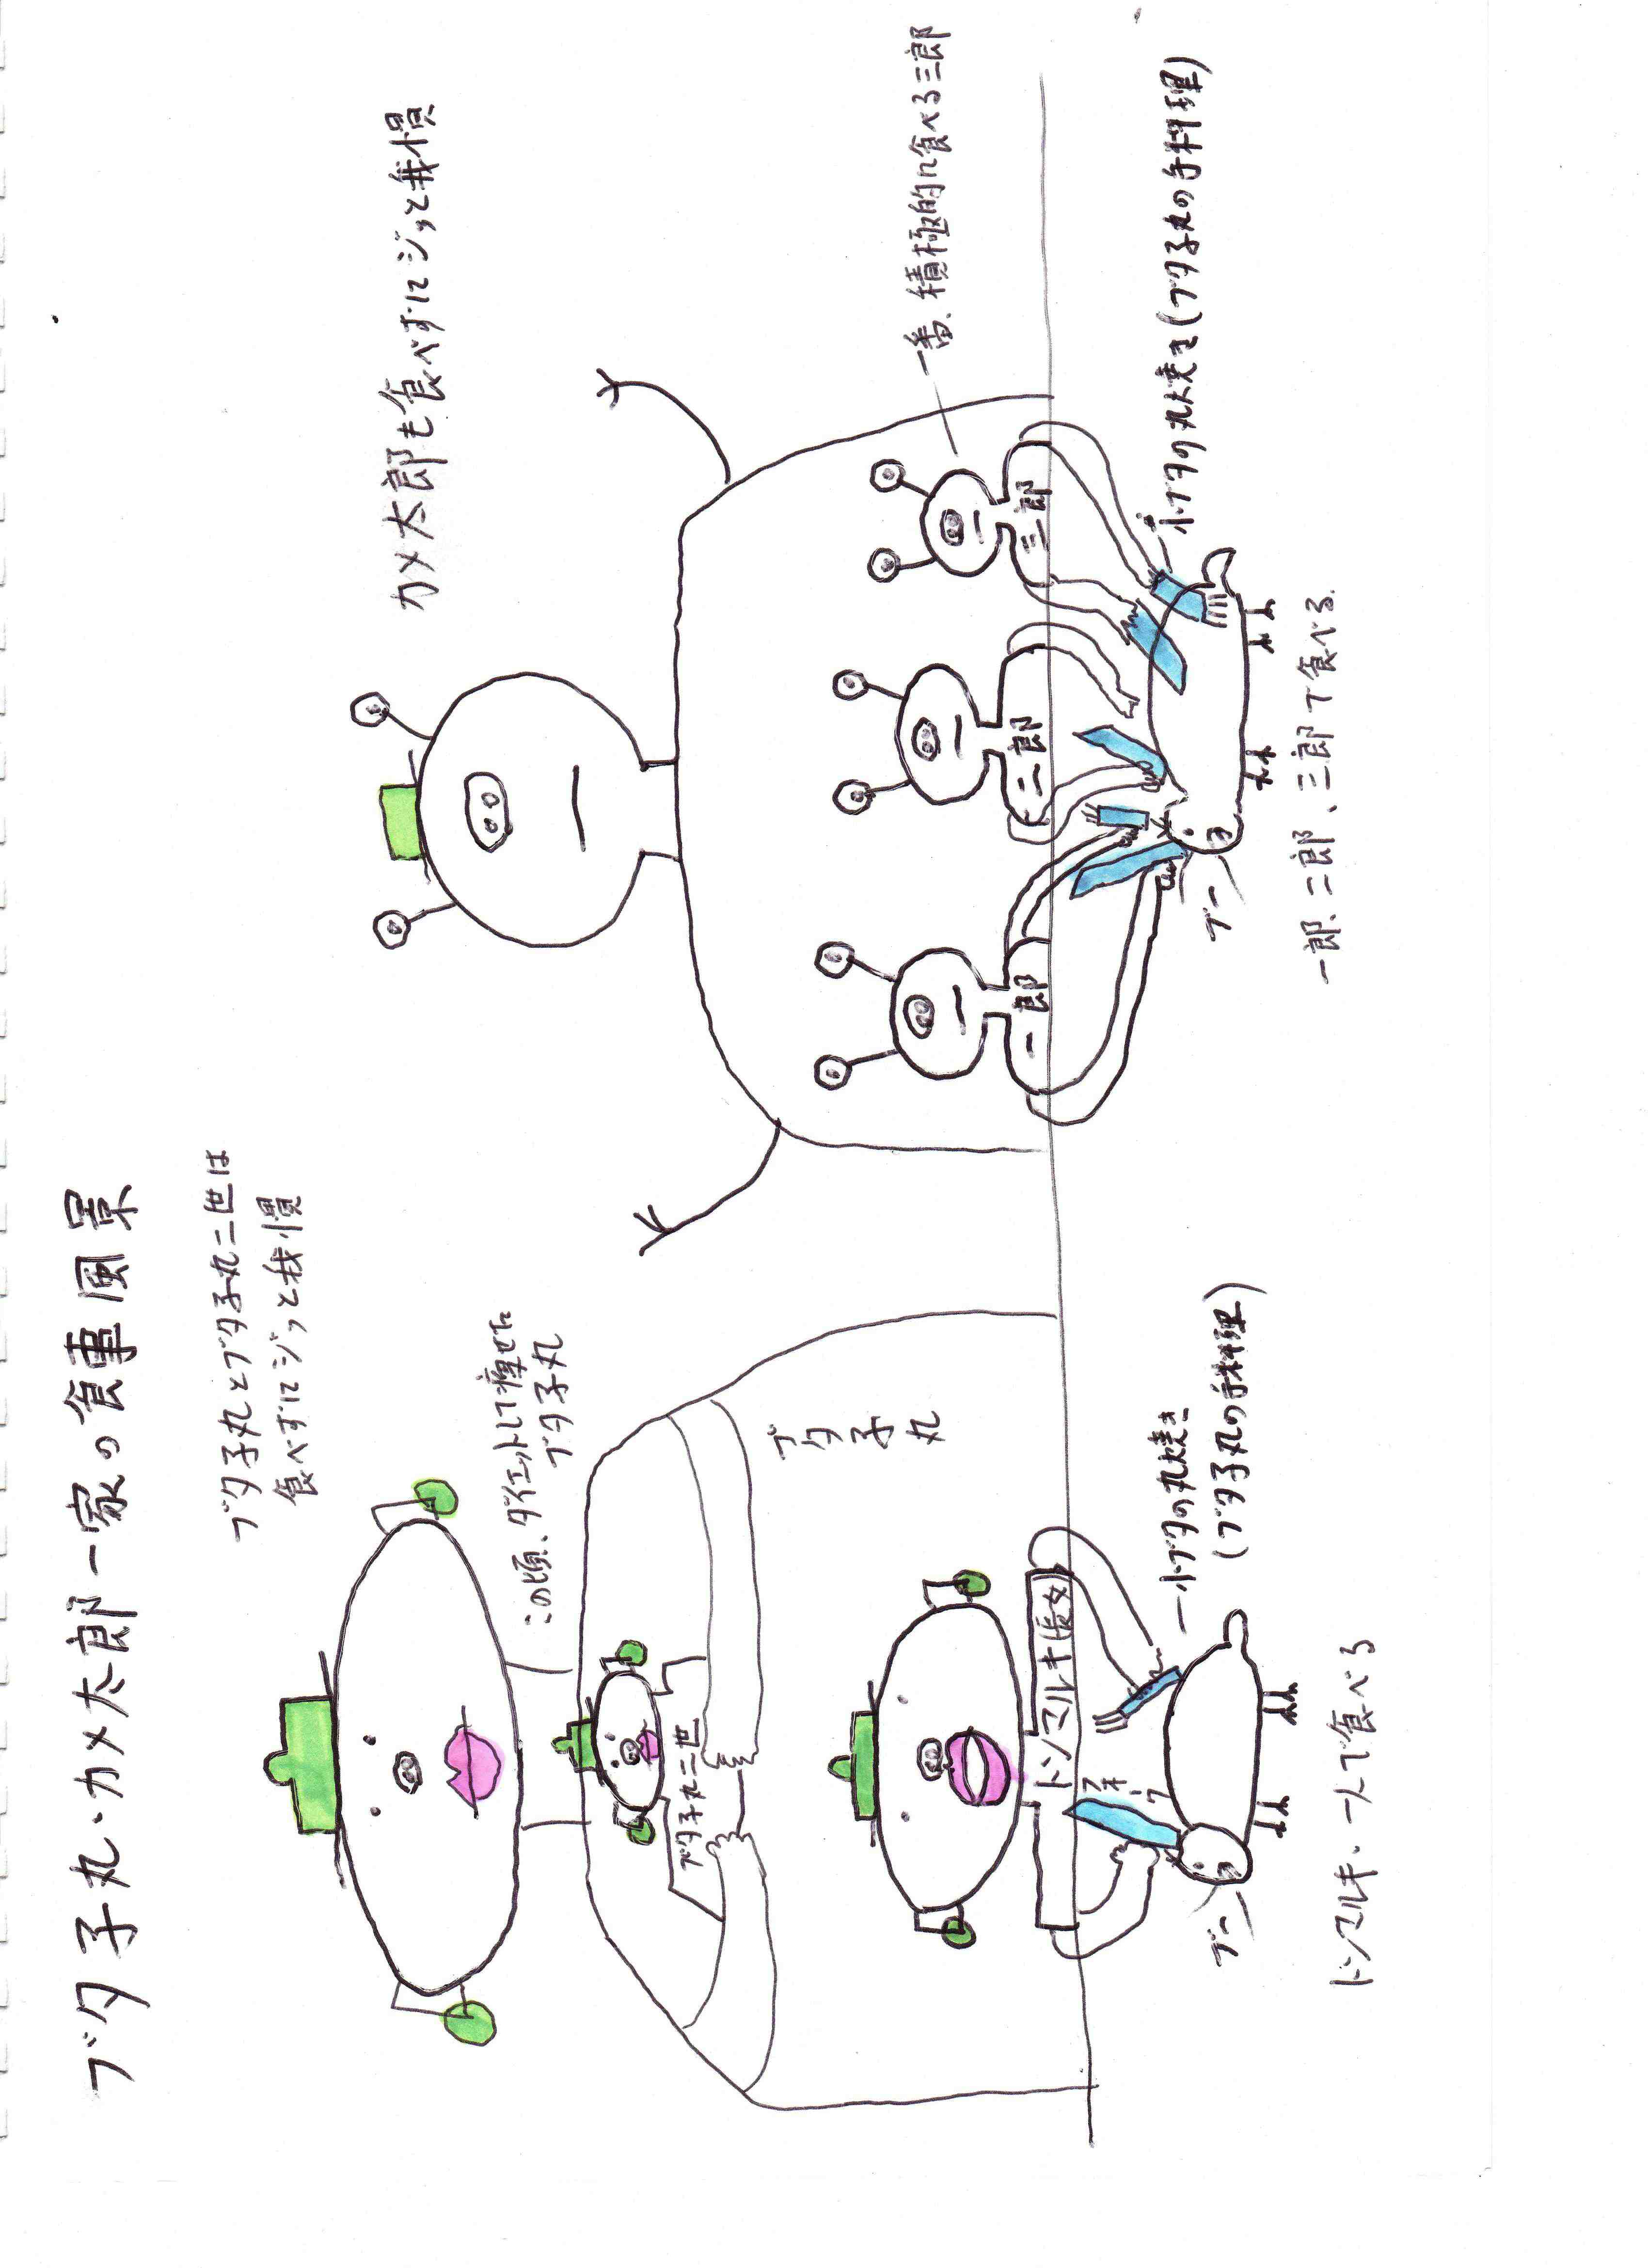 ブタ子丸・カメ太郎一家の食事風景
ブタ子丸とブタ子丸二世は
食べずにジッと我慢
この頃、ダイエットして痩せた
ブタ子丸
ブタ子丸二世
ブタ子丸
トンマルキ長女
フォーク
小ブタの丸焼き
(ブタ子丸の手料理)
ブー
トンマルキ、一人で食べる
カメ太郎も食べずにジッと我慢
一番、積極的に食べる三郎
一郎
二郎
三郎
小ブタの丸焼き(ブタ子丸の手料理)
ブー
一郎、二郎、三郎で食べる.